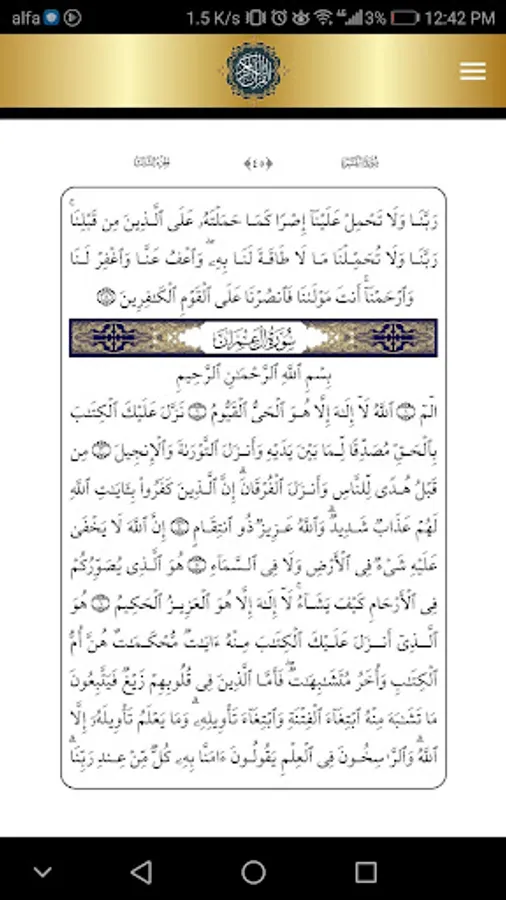 alfa 1.5 K/s 4G 3% 12:42 PM
﴿٤٥﴾
رَبَّنَا وَلَا تَحْمِلْ عَلَيْنَآ إِصْرًا كَمَا حَمَلْتَهُۥ عَلَى ٱلَّذِينَ مِن قَبْلِنَاۚ
رَبَّنَا وَلَا تُحَمِّلْنَا مَا لَا طَاقَةَ لَنَا بِهِۦۖ وَٱعْفُ عَنَّا وَٱغْفِرْ لَنَا
وَٱرْحَمْنَآۚ أَنتَ مَوْلَىٰنَا فَٱنصُرْنَا عَلَى ٱلْقَوْمِ ٱلْكَٰفِرِينَ
سُورَةُ آلِ عِمْرَانَ
بِسْمِ ٱللَّهِ ٱلرَّحْمَٰنِ ٱلرَّحِيمِ
الٓمٓ ۝ ٱللَّهُ لَآ إِلَٰهَ إِلَّا هُوَ ٱلْحَىُّ ٱلْقَيُّومُ ۝ نَزَّلَ عَلَيْكَ ٱلْكِتَٰبَ
بِٱلْحَقِّ مُصَدِّقًا لِّمَا بَيْنَ يَدَيْهِ وَأَنزَلَ ٱلتَّوْرَىٰةَ وَٱلْإِنجِيلَ ۝ مِن
قَبْلُ هُدًى لِّلنَّاسِ وَأَنزَلَ ٱلْفُرْقَانَۗ إِنَّ ٱلَّذِينَ كَفَرُوا۟ بِـَٔايَٰتِ ٱللَّهِ
لَهُمْ عَذَابٌ شَدِيدٌۗ وَٱللَّهُ عَزِيزٌ ذُو ٱنتِقَامٍ ۝ إِنَّ ٱللَّهَ لَا يَخْفَىٰ
عَلَيْهِ شَىْءٌ فِى ٱلْأَرْضِ وَلَا فِى ٱلسَّمَآءِ ۝ هُوَ ٱلَّذِى يُصَوِّرُكُمْ
فِى ٱلْأَرْحَامِ كَيْفَ يَشَآءُۚ لَآ إِلَٰهَ إِلَّا هُوَ ٱلْعَزِيزُ ٱلْحَكِيمُ ۝ هُوَ
ٱلَّذِىٓ أَنزَلَ عَلَيْكَ ٱلْكِتَٰبَ مِنْهُ ءَايَٰتٌ مُّحْكَمَٰتٌ هُنَّ أُمُّ
ٱلْكِتَٰبِ وَأُخَرُ مُتَشَٰبِهَٰتٌۖ فَأَمَّا ٱلَّذِينَ فِى قُلُوبِهِمْ زَيْغٌ فَيَتَّبِعُونَ
مَا تَشَٰبَهَ مِنْهُ ٱبْتِغَآءَ ٱلْفِتْنَةِ وَٱبْتِغَآءَ تَأْوِيلِهِۦۗ وَمَا يَعْلَمُ تَأْوِيلَهُۥٓ إِلَّا
ٱللَّهُۗ وَٱلرَّٰسِخُونَ فِى ٱلْعِلْمِ يَقُولُونَ ءَامَنَّا بِهِۦ كُلٌّ مِّنْ عِندِ رَبِّنَاۗ